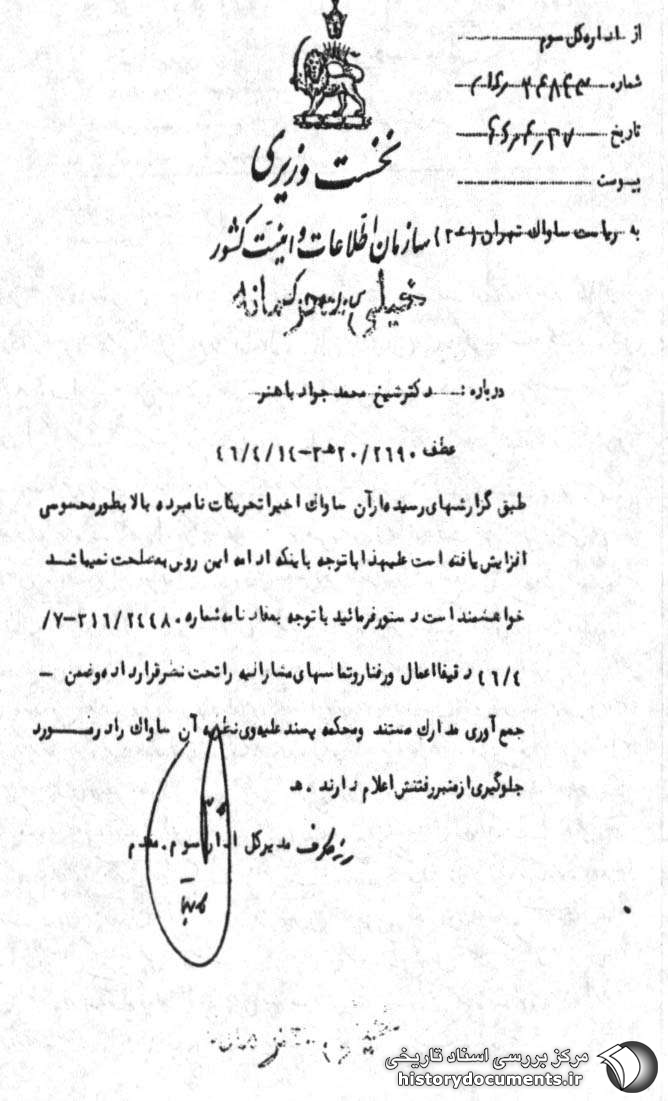 از ادارهکل سوم
شماره
تاریخ
پیوست
نخست وزیری
سازمان اطلاعات و امنیت کشور
به ریاست ساواك تهران (۲۰ه)
خیلی محرمانه
درباره : دکترشیخ محمد جواد باهنر
عطف ۲۰/۲۶۹۰ه۳-۴۶/۴/۱۴
طبق گزارشهای رسیده ازآن ساواك اخیرا تحریکات نامبرده بالا بطورمحسوسی
افزایش یافته است علیهذا باتوجه باینکه ادامه این روش بمصلحت نمیباشد
خواهشمند است دستورفرمائید باتوجه بمفاد نامه شماره ۳۱۶/۲۴۴۸۰-۷/
۴۶/۴ دقیقا اعمال ورفتار وتماسهای مشارالیه را تحت نظر قرار داده وضمن -
جمع آوری مدارك مستند ومحکمه پسند علیه وی نظریه آن ساواك را در مورد
جلوگیری ازمنبر رفتنش اعلام دارند . ه
از طرف مدیرکل اداره سوم . مقدم
خیلی محرمانه
مرکز بررسی اسناد تاریخی
historydocuments.ir